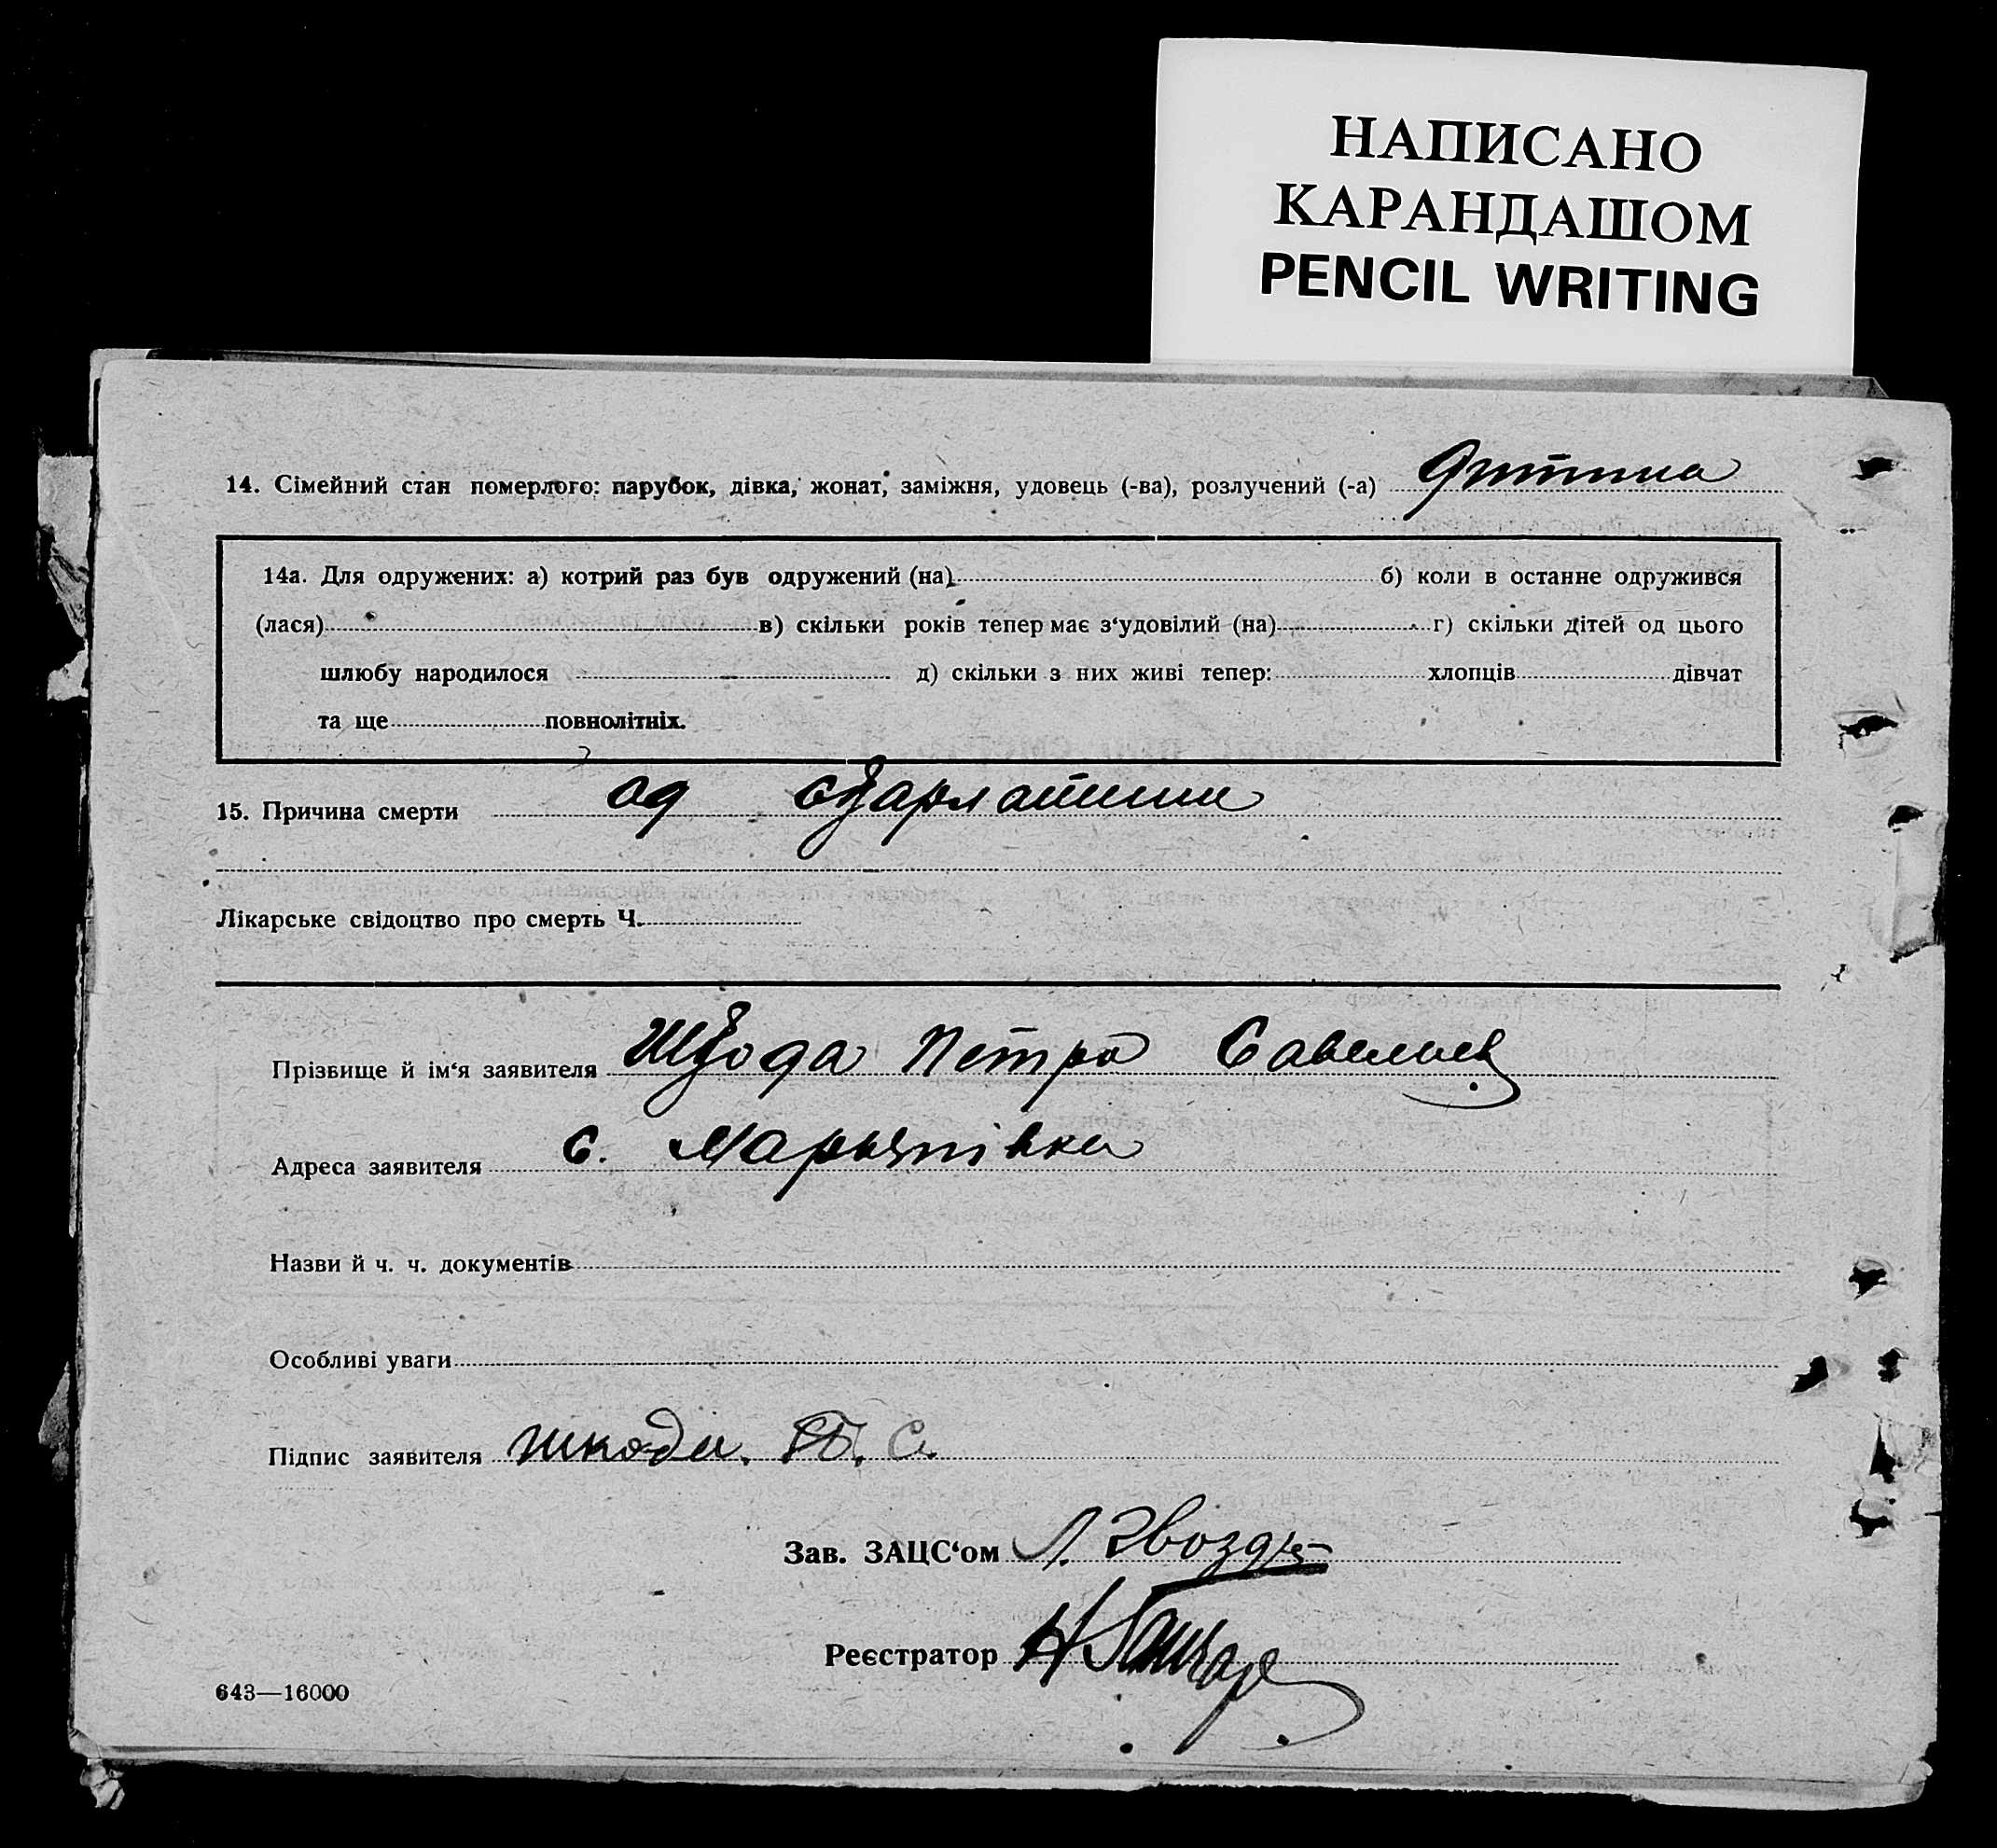 НАПИСАНО
КАРАНДАШОМ
PENCIL WRITING
14. Сімейний стан померлого: парубок, дівка, жонат, заміжня, удовець (-ва), розлучений (-а) дитина
14а. Для одружених: а) котрий раз був одружений (на) б) коли в останне одружився
(лася) в) скільки років тепер має з‘удовілий (на) г) скільки дітей од цього
шлюбу народилося д) скільки з них живі тепер: хлопців дівчат
та ще повнолітніх.
15. Причина смерти од скарлатини
Лікарське свідоцтво про смерть Ч.
Прізвище й ім‘я заявителя Шкода Петро Савельев
Адреса заявителя с. Марьятівка
Назви й ч. ч. документів
Особливі уваги
Підпис заявителя Шкода. П. С.
Зав. ЗАЦС‘ом Л. Гвоздь
Реєстратор
643—16000